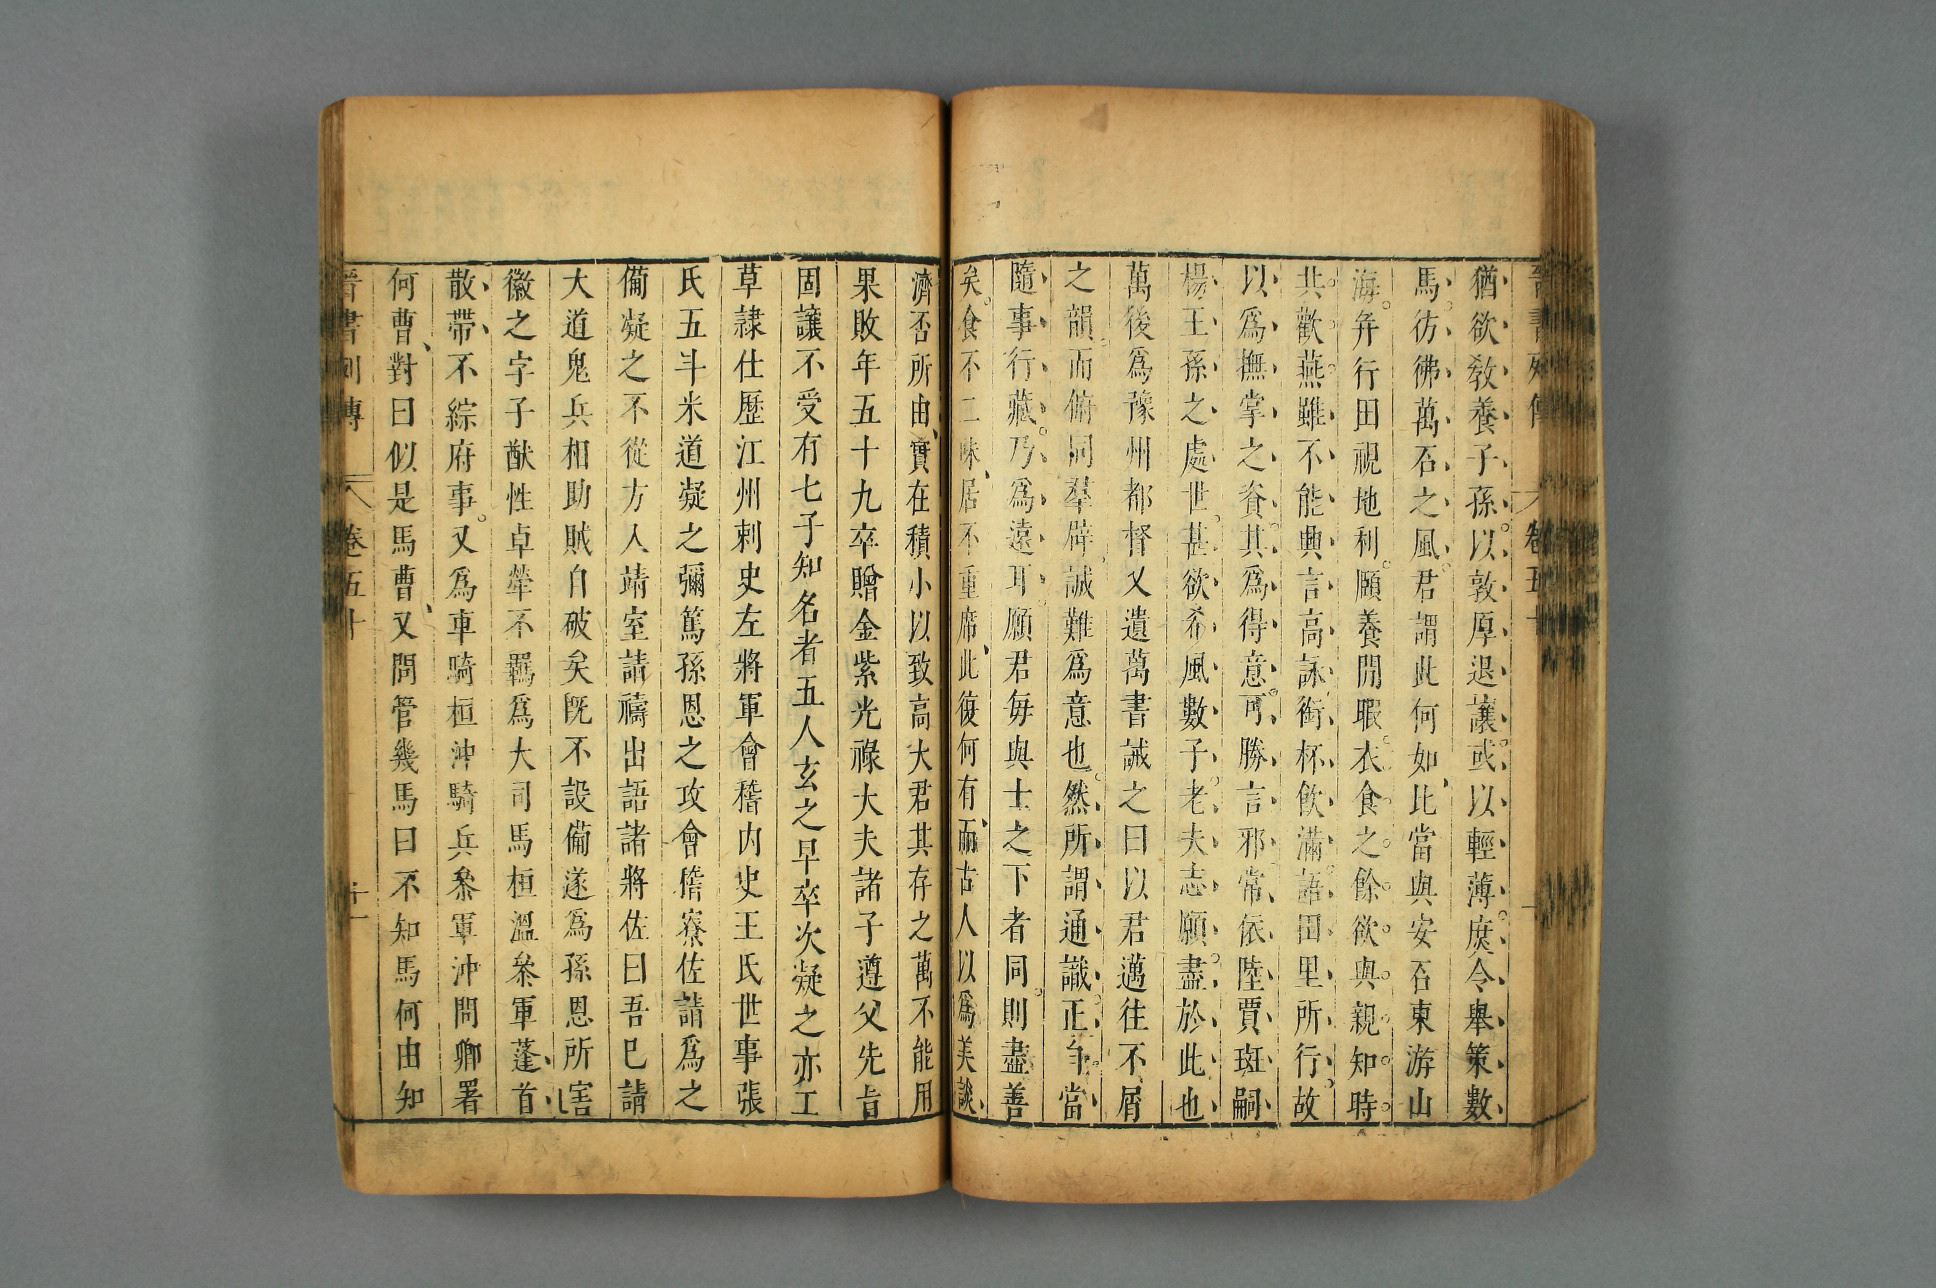 晉書列傳 卷五十
猶欲敎養子孫。以敦厚退讓。或以輕薄。庻令舉策數
馬。彷彿萬石之風。君謂此何如、比當與安石東游山
海。幷行田視地利。頤養閒暇。衣食之餘欲與親知時
共歡燕。雖不能興言高詠、銜杯飮滿。語田里所行。故
以爲撫掌之資。其爲得意。可勝言邪常依陸賈班嗣
楊王孫之處世。甚欲希風數子。老夫志願盡於此也
萬後爲豫州都督又遺萬書誡之曰以君邁往不屑
之韻。而俯同羣辟。誠難爲意也。然所謂通識正自當
隨事行藏。乃爲遠耳。願君每與士之下者同。則盡善
矣。食不二味、居不重席、此復何有、而古人以爲美談、
濟否所由、實在積小以致高大君其存之萬不能用
果敗年五十九卒贈金紫光祿大夫諸子遵父先旨
固讓不受有七子知名者五人玄之早卒次凝之亦工
草隷仕歷江州刺史左將軍會稽内史王氏世事張
氏五斗米道凝之彌篤孫恩之攻會稽寮佐請爲之
備凝之不從方入靖室請禱出語諸將佐曰吾已請
大道鬼兵相助賊自破矣旣不設備遂爲孫恩所害
徽之字子猷性卓犖不羈爲大司馬桓溫叅軍蓬首
散帶、不綜府事。又爲車騎桓沖騎兵叅軍沖問卿署
何曹、對曰似是馬曹、又問管幾馬曰不知馬何由知
晉書列傳 八 卷五十 十一